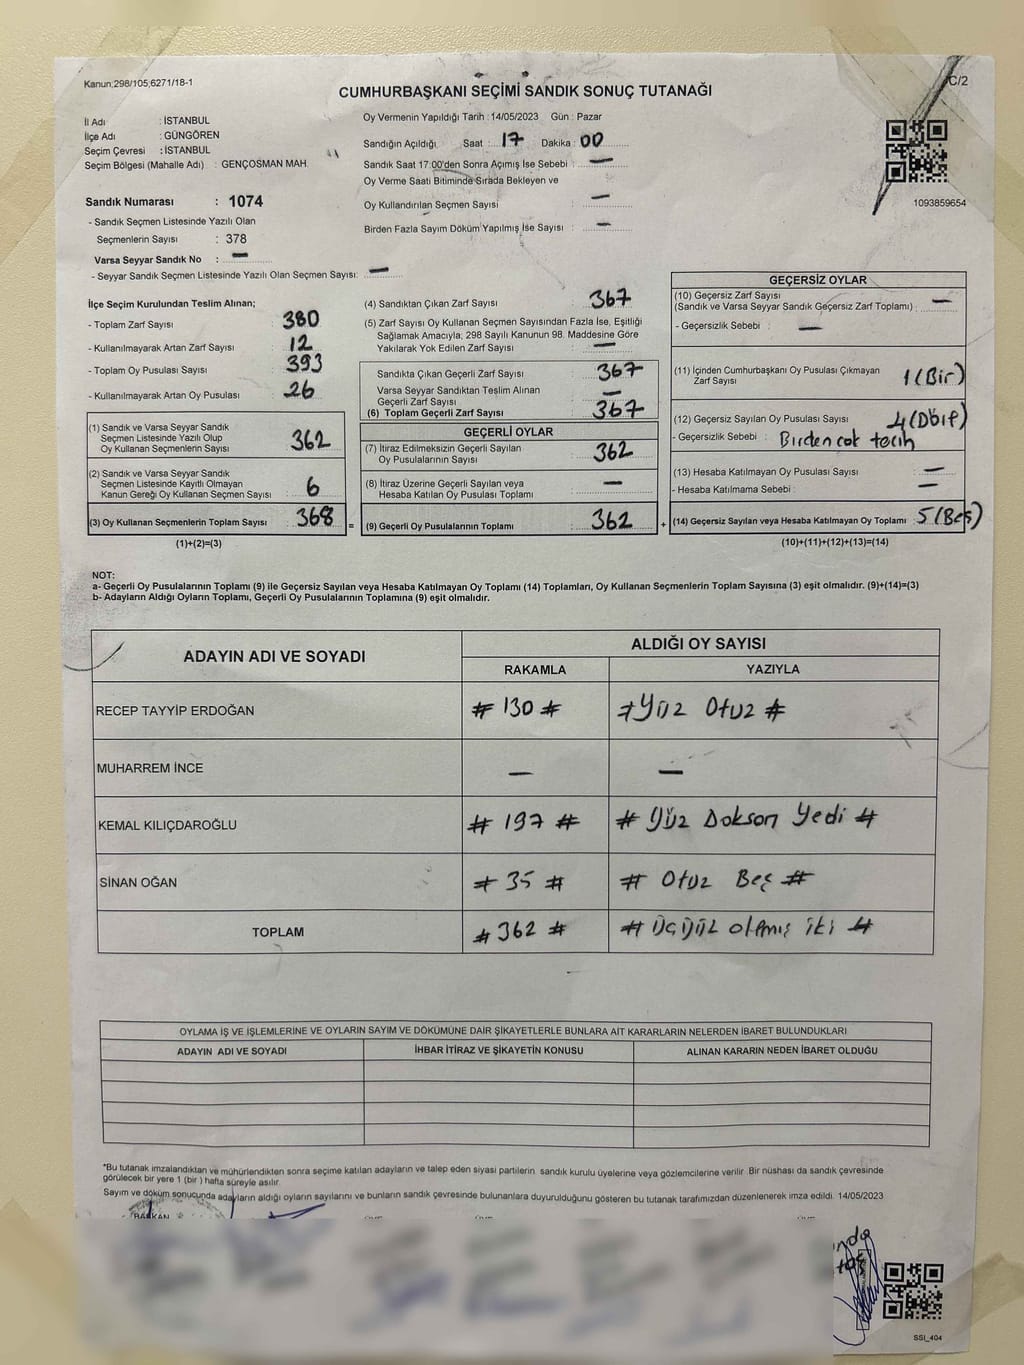 Kanun;298/105;6271/18-1
C/2
CUMHURBAŞKANI SEÇİMİ SANDIK SONUÇ TUTANAĞI
İl Adı : İSTANBUL
İlçe Adı : GÜNGÖREN
Seçim Çevresi : İSTANBUL
Seçim Bölgesi (Mahalle Adı) : GENÇOSMAN MAH.
Sandık Numarası : 1074
- Sandık Seçmen Listesinde Yazılı Olan
Seçmenlerin Sayısı : 378
Varsa Seyyar Sandık No : —
- Seyyar Sandık Seçmen Listesinde Yazılı Olan Seçmen Sayısı: —
Oy Vermenin Yapıldığı Tarih : 14/05/2023 Gün : Pazar
Sandığın Açıldığı Saat : 17 Dakika : 00
Sandık Saat 17:00'den Sonra Açımış İse Sebebi : —
Oy Verme Saati Bitiminde Sırada Bekleyen ve
Oy Kullandırılan Seçmen Sayısı : —
Birden Fazla Sayım Döküm Yapılmış İse Sayısı : —
1093859654
İlçe Seçim Kurulundan Teslim Alınan;
- Toplam Zarf Sayısı : 380
- Kullanılmayarak Artan Zarf Sayısı : 12
- Toplam Oy Pusulası Sayısı : 393
- Kullanılmayarak Artan Oy Pusulası : 26
(1) Sandık ve Varsa Seyyar Sandık
Seçmen Listesinde Yazılı Olup
Oy Kullanan Seçmenlerin Sayısı : 362
(2) Sandık ve Varsa Seyyar Sandık
Seçmen Listesinde Kayıtlı Olmayan
Kanun Gereği Oy Kullanan Seçmen Sayısı : 6
(3) Oy Kullanan Seçmenlerin Toplam Sayısı : 368 =
(1)+(2)=(3)
(4) Sandıktan Çıkan Zarf Sayısı : 367
(5) Zarf Sayısı Oy Kullanan Seçmen Sayısından Fazla İse, Eşitliği
Sağlamak Amacıyla; 298 Sayılı Kanunun 98. Maddesine Göre
Yakılarak Yok Edilen Zarf Sayısı : —
Sandıkta Çıkan Geçerli Zarf Sayısı : 367
Varsa Seyyar Sandıktan Teslim Alınan
Geçerli Zarf Sayısı : —
(6) Toplam Geçerli Zarf Sayısı : 367
GEÇERLİ OYLAR
(7) İtiraz Edilmeksizin Geçerli Sayılan
Oy Pusulalarının Sayısı : 362
(8) İtiraz Üzerine Geçerli Sayılan veya
Hesaba Katılan Oy Pusulası Toplamı : —
(9) Geçerli Oy Pusulalarının Toplamı : 362 +
GEÇERSİZ OYLAR
(10) Geçersiz Zarf Sayısı
(Sandık ve Varsa Seyyar Sandık Geçersiz Zarf Toplamı) : —
- Geçersizlik Sebebi : —
(11) İçinden Cumhurbaşkanı Oy Pusulası Çıkmayan
Zarf Sayısı : 1 (Bir)
(12) Geçersiz Sayılan Oy Pusulası Sayısı : 4 (Dört)
- Geçersizlik Sebebi : Birden cok tecih
(13) Hesaba Katılmayan Oy Pusulası Sayısı : —
- Hesaba Katılmama Sebebi : —
(14) Geçersiz Sayılan veya Hesaba Katılmayan Oy Toplamı : 5 (Beş)
(10)+(11)+(12)+(13)=(14)
NOT:
a- Geçerli Oy Pusulalarının Toplamı (9) ile Geçersiz Sayılan veya Hesaba Katılmayan Oy Toplamı (14) Toplamları, Oy Kullanan Seçmenlerin Toplam Sayısına (3) eşit olmalıdır. (9)+(14)=(3)
b- Adayların Aldığı Oyların Toplamı, Geçerli Oy Pusulalarının Toplamına (9) eşit olmalıdır.
ADAYIN ADI VE SOYADI
ALDIĞI OY SAYISI
RAKAMLA YAZIYLA
RECEP TAYYİP ERDOĞAN # 130 # # Yüz Otuz #
MUHARREM İNCE — —
KEMAL KILIÇDAROĞLU # 197 # # Yüz Dokson Yedi #
SİNAN OĞAN # 35 # # Otuz Beş #
TOPLAM # 362 # # Üçyüz oltmış iki #
OYLAMA İŞ VE İŞLEMLERİNE VE OYLARIN SAYIM VE DÖKÜMÜNE DAİR ŞİKAYETLERLE BUNLARA AİT KARARLARIN NELERDEN İBARET BULUNDUKLARI
ADAYIN ADI VE SOYADI İHBAR İTİRAZ VE ŞİKAYETİN KONUSU ALINAN KARARIN NEDEN İBARET OLDUĞU
*Bu tutanak imzalandıktan ve mühürlendikten sonra seçime katılan adayların ve talep eden siyasi partilerin, sandık kurulu üyelerine veya gözlemcilerine verilir. Bir nüshası da sandık çevresinde
görülecek bir yere 1 (bir ) hafta süreyle asılır.
Sayım ve döküm sonucunda adayların aldığı oyların sayılarını ve bunların sandık çevresinde bulunanlara duyurulduğunu gösteren bu tutanak tarafımızdan düzenlenerek imza edildi. 14/05/2023
BAŞKAN
SSI_404